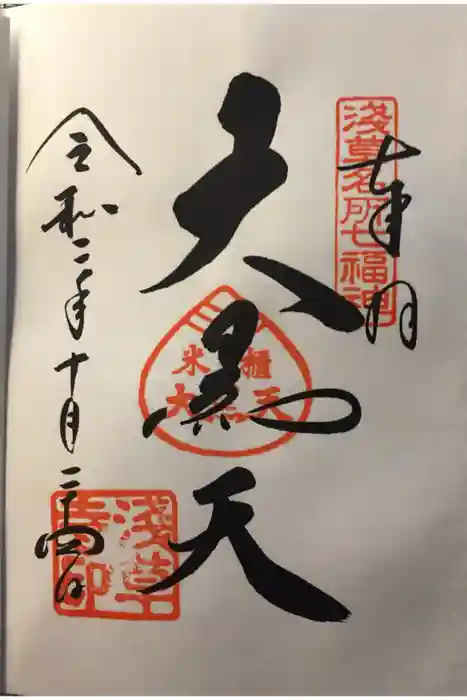 奉拝
浅草名所七福神
大黒天
米櫃
大黒天
令和二年十月二十四日
浅草
寺印